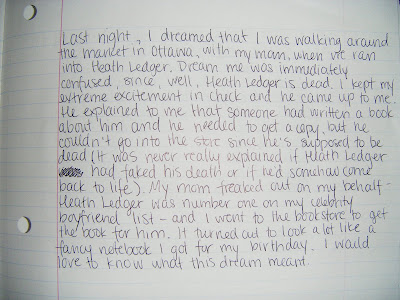 Last night, I dreamed that I was walking around
the market in Ottawa, with my mom, when we ran
into Heath Ledger. Dream me was immediately
confused, since, well, Heath Ledger is dead. I kept my
extreme excitement in check and he came up to me.
He explained to me that someone had written a book
about him and he needed to get a copy, but he
couldn't go into the store since he's supposed to be
dead (It was never really explained if Heath Ledger
had faked his death or if he'd somehow come
back to life). My mom freaked out on my behalf -
Heath Ledger was number one on my celebrity
boyfriend list - and I went to the bookstore to get
the book for him. It turned out to look a lot like a
fancy notebook I got for my birthday. I would
love to know what this dream meant.